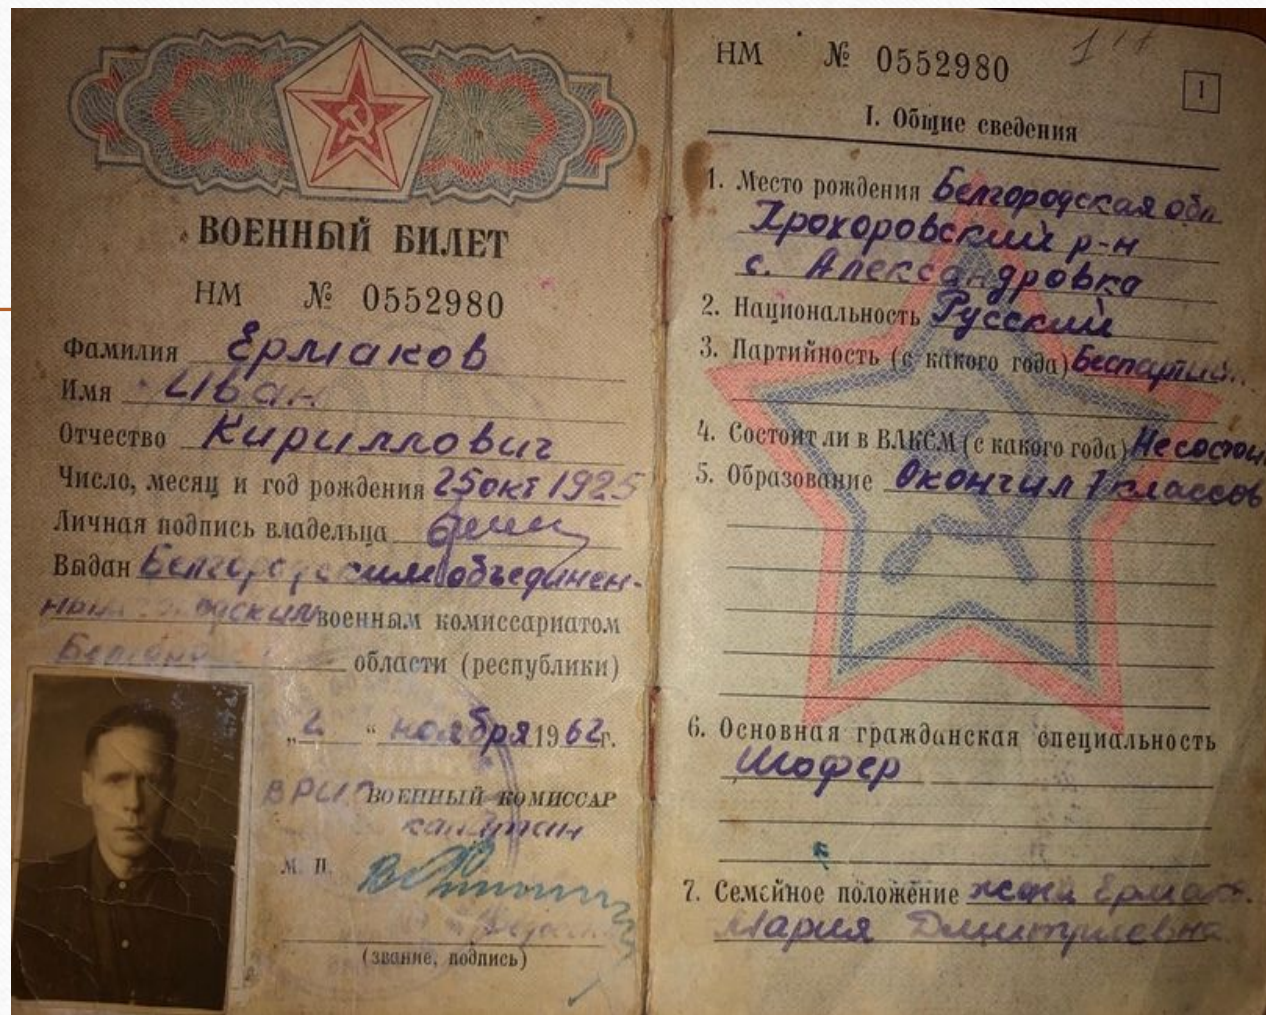 ВОЕННЫЙ БИЛЕТ
НМ № 0552980
Фамилия Ермаков
Имя Иван
Отчество Кириллович
Число, месяц и год рождения 25 окт 1925
Личная подпись владельца
Выдан Белгородским объединен-
военным комиссариатом
области (республики)
„2“ ноября 1962г.
ВРИО ВОЕННЫЙ КОМИССАР
капитан
М. П.
(звание, подпись)
НМ № 0552980
1
I. Общие сведения
1. Место рождения Белгородская обл
Прохоровский р-н
с. Александровка
2. Национальность Русский
3. Партийность (с какого года) Беспартий..
4. Состоит ли в ВЛКСМ (с какого года) Не состои
5. Образование Окончил 7 классов
6. Основная гражданская специальность
Шофер
7. Семейное положение жена Ермако.
Мария Дмитриевна